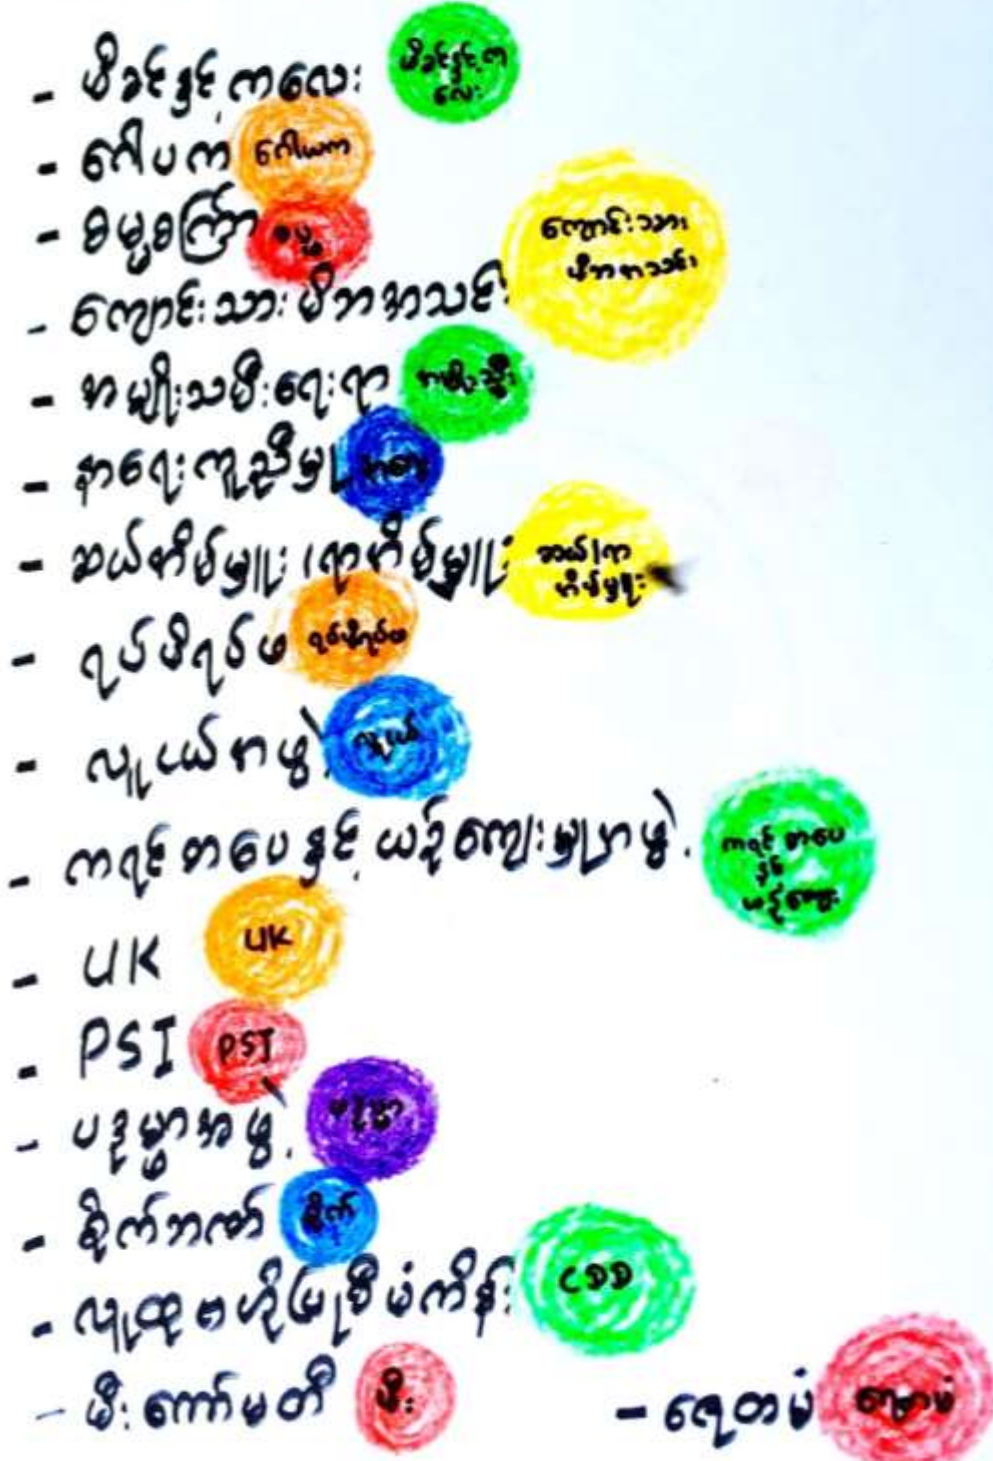 - မိခင်နှင့်ကလေး မိခင်နှင့်က
လေး
- ဂေါပက ဂေါပက
- ဓမ္မစကြာ ဓမ္မ
- ကျောင်းသားမိဘအသင်း ကျောင်းသား
မိဘအသင်း
- အမျိုးသမီးရေးရာ အမျိုးသမီး
- နာရေးကူညီမှု နာရေး
- ဆယ်အိမ်မှူး၊ရာအိမ်မှူး ဆယ်/ရာ
အိမ်မှူး
- ရပ်မိရပ်ဖ ရပ်မိရပ်ဖ
- လူငယ်အဖွဲ့ လူငယ်
- ကရင်စာပေနှင့်ယဉ်ကျေးမှုအဖွဲ့ ကရင်စာပေ
နှင့်
ယဉ်ကျေး
- UK UK
- PSI PSI
- ပဒုမ္မာအဖွဲ့ ပဒုမ္မာ
- စိုက်ဘဏ် စိုက်
- လူထုဗဟိုပြုစီမံကိန်း CDD
- မီးကော်မတီ မီး - ရေတမံ